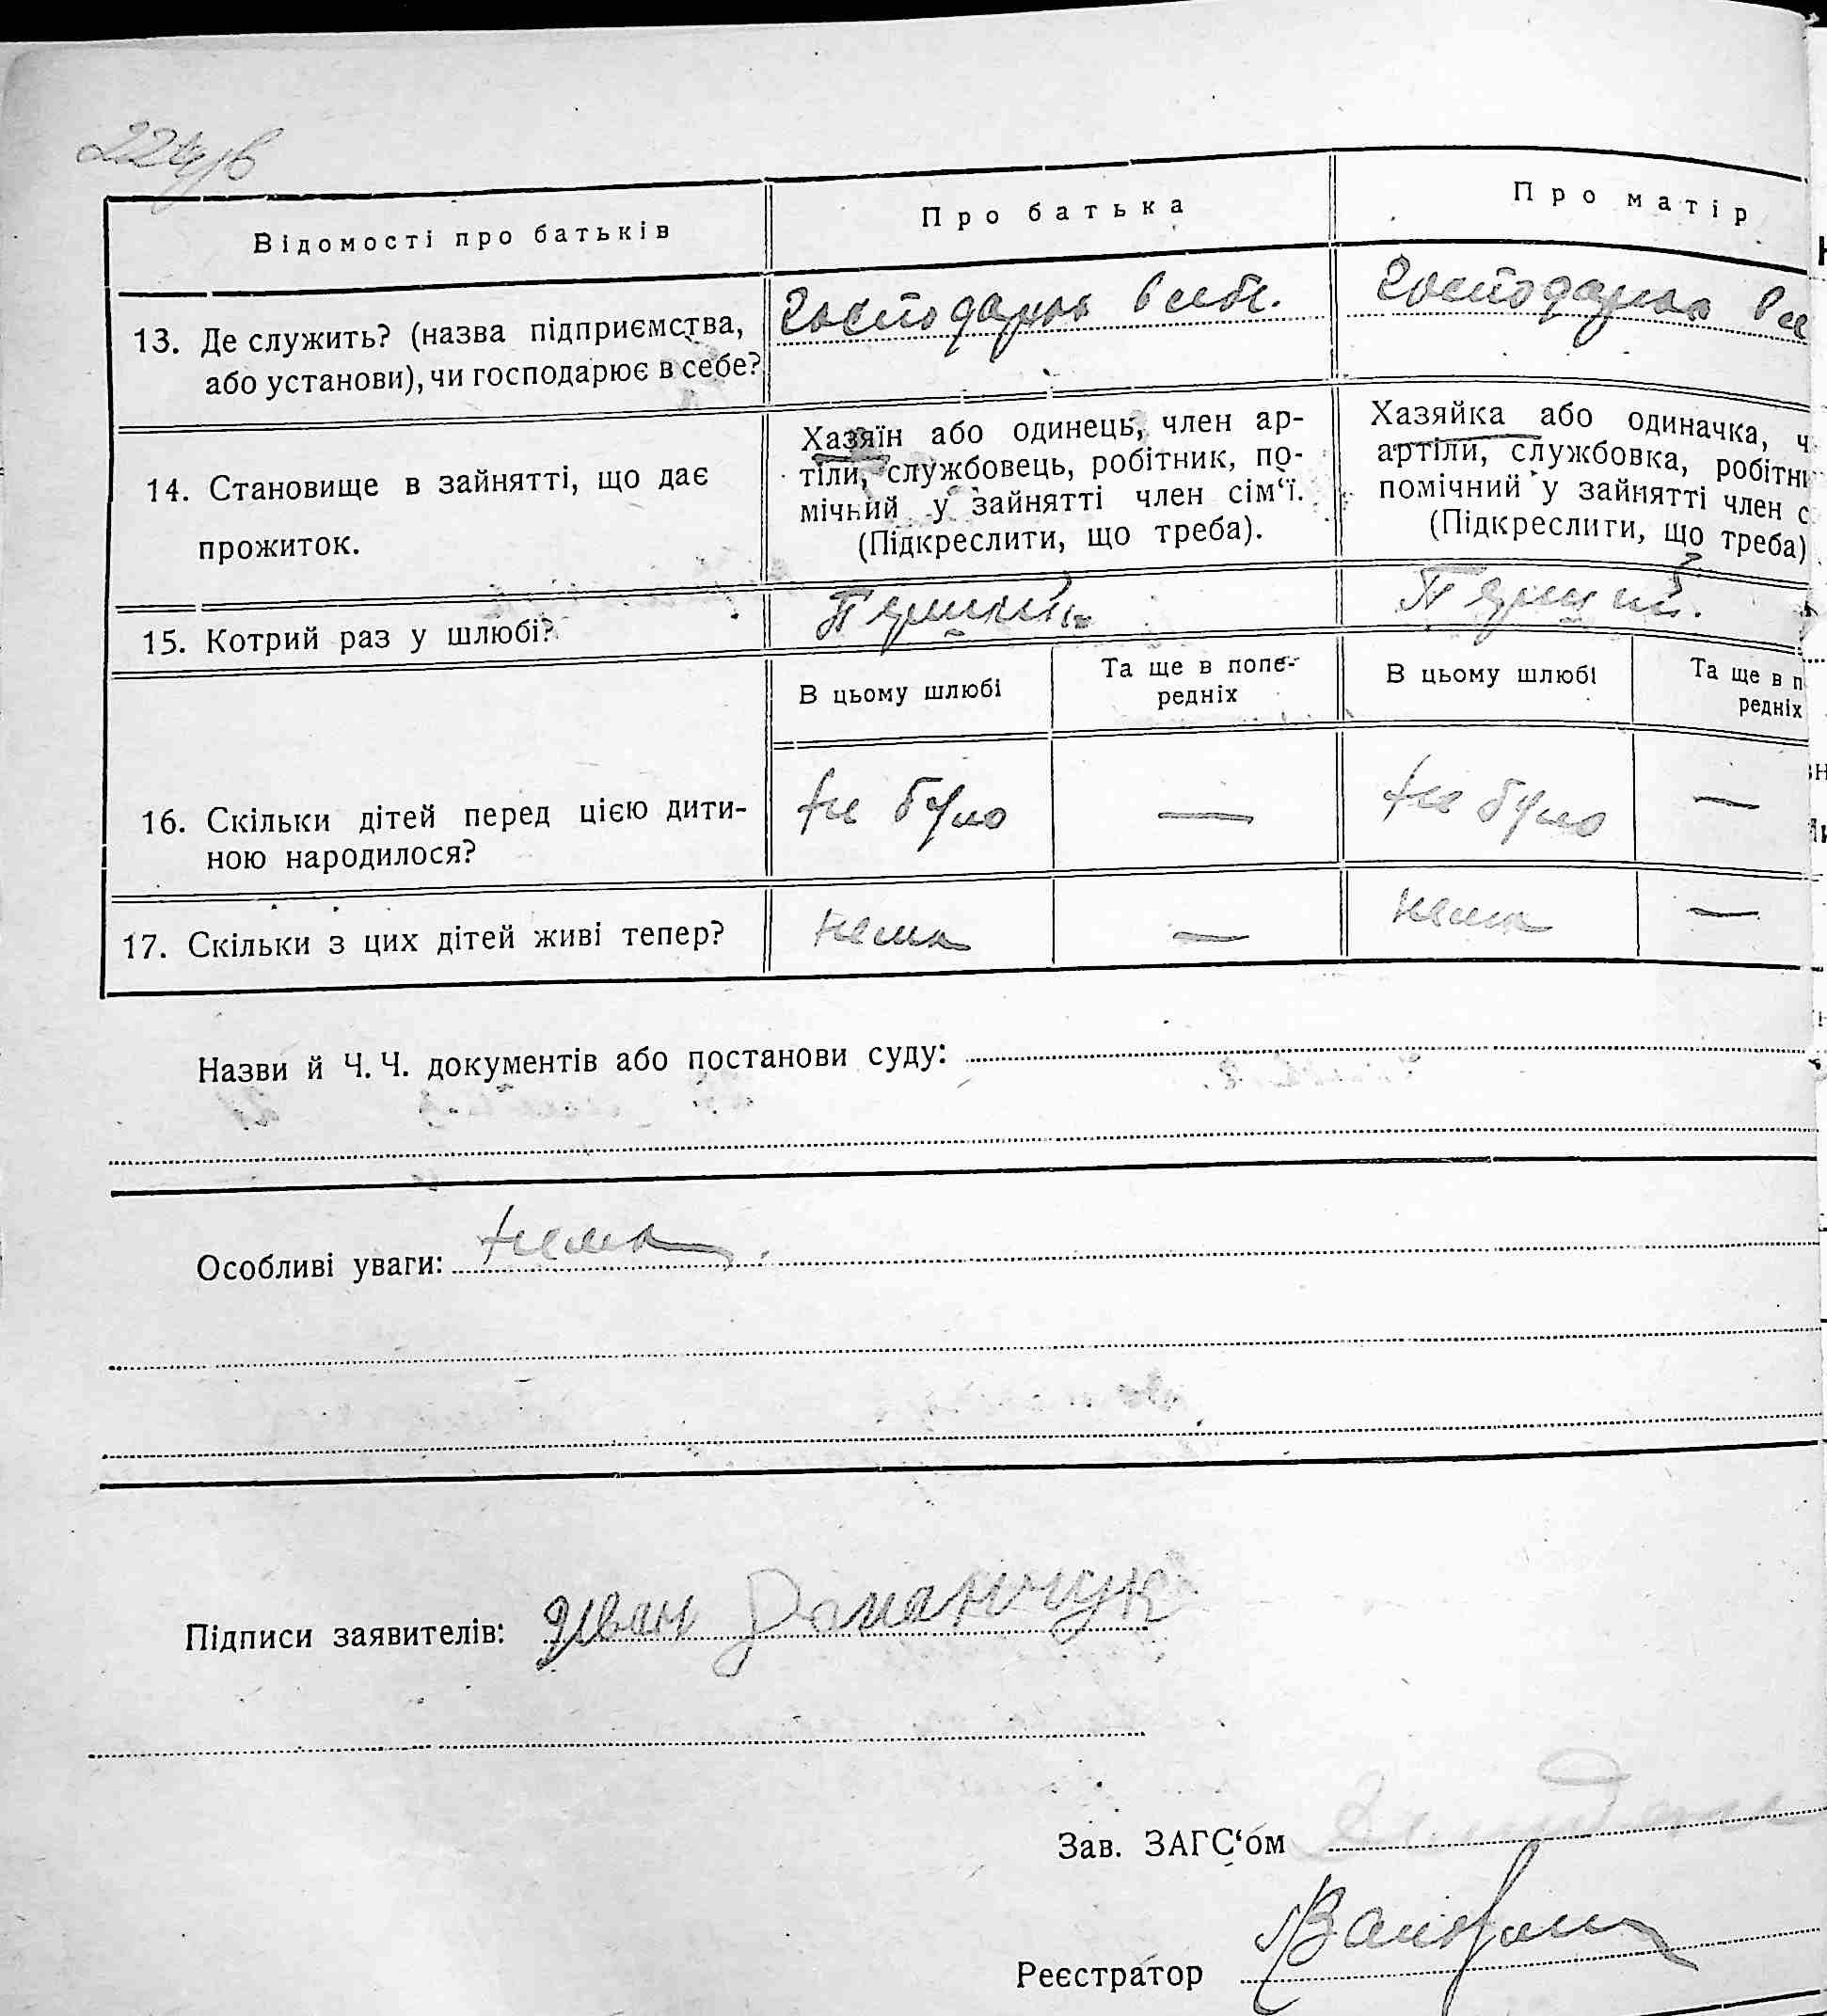 Відомості про батьків
Про батька
Про матір
13. Де служить? (назва підприємства,
або установи), чи господарює в себе?
господарює в себе.
господарює в се
14. Становище в зайнятті, що дає
прожиток.
Хазяїн або одинець, член ар-
тіли, службовець, робітник, по-
мічний у зайнятті член сім‘ї.
(Підкреслити, що треба).
Хазяйка або одиначка, ч
артіли, службовка, робітни
помічний у зайнятті член с
(Підкреслити, що треба)
15. Котрий раз у шлюбі?
Перший
Перший.
В цьому шлюбі
Та ще в попе-
редніх
В цьому шлюбі
Та ще в п
редніх
16. Скільки дітей перед цією дити-
ною народилося?
не було
—
не було
—
17. Скільки з цих дітей живі тепер?
нема
—
нема
—
Назви й Ч. Ч. документів або постанови суду:
Особливі уваги: нема
Підписи заявителів: Иван Романчук
Зав. ЗАГС‘ом
Реєстратор